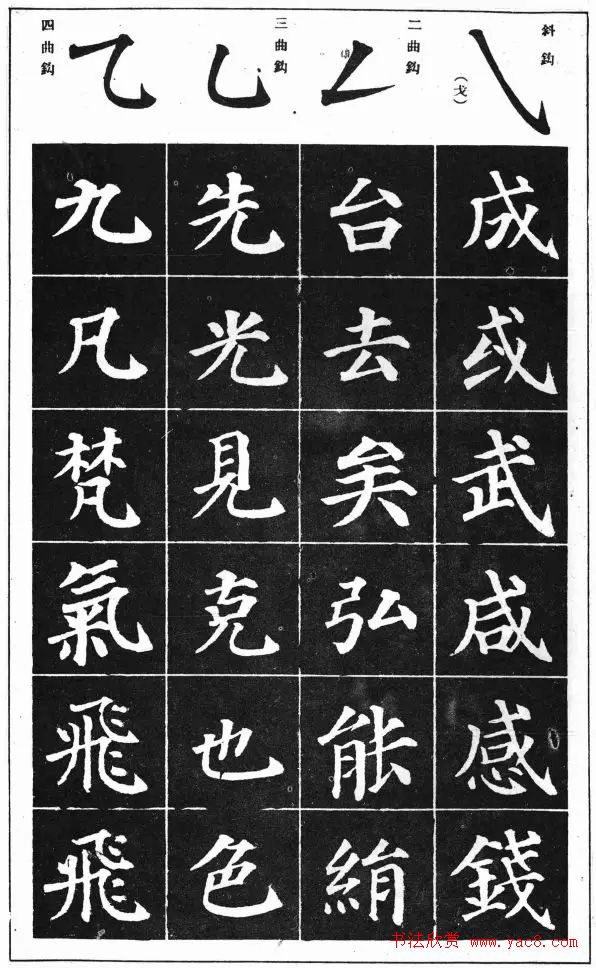 斜鈎
(戈)
成或武咸感錢
二曲鈎
台去矣弘能絹
三曲鈎
先光見克也色
四曲鈎
九凡梵氣飛飛
书法欣赏 www.yac8.com